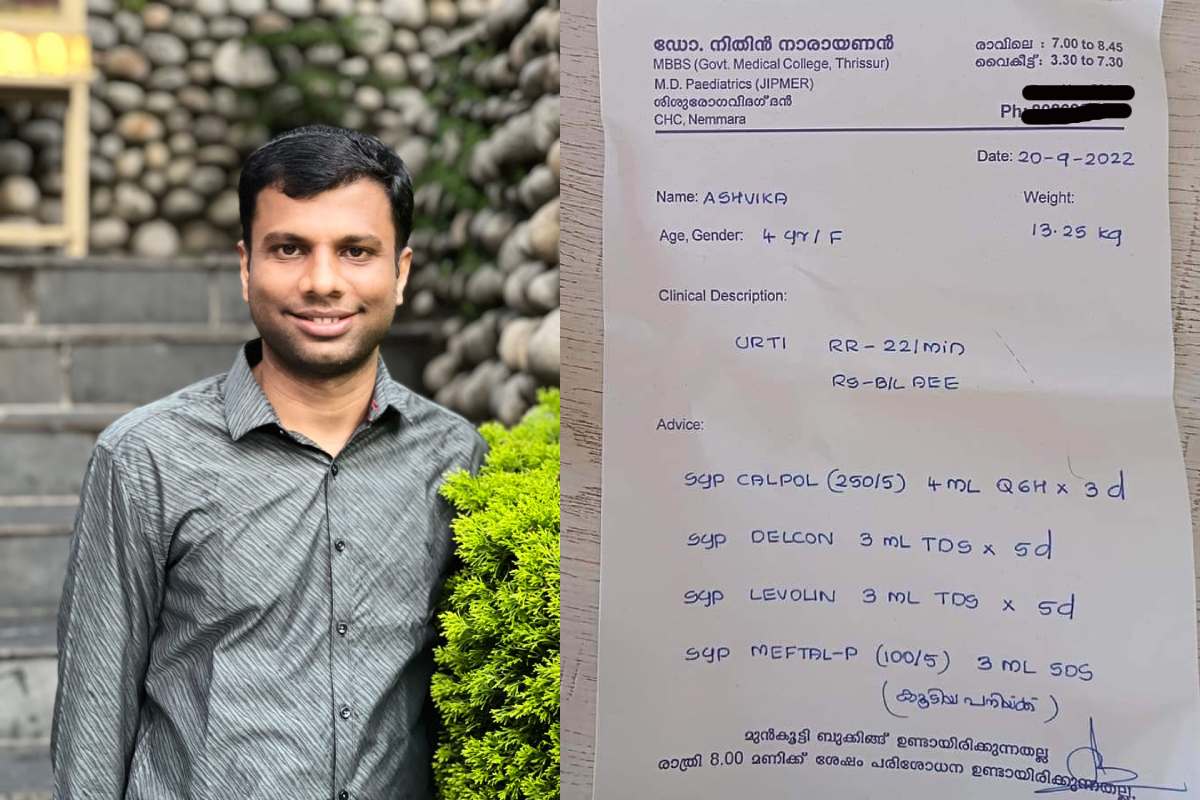 ഡോ. നിതിൻ നാരായണൻ
MBBS (Govt. Medical College, Thrissur)
M.D. Paediatrics (JIPMER)
ശിശുരോഗവിദഗ്ദൻ
CHC, Nemmara
രാവിലെ : 7.00 to 8.45
വൈകീട്ട്: 3.30 to 7.30
Ph:
Date: 20-9-2022
Name: ASHVIKA
Weight:
13.25 kg
Age, Gender: 4 yr / F
Clinical Description:
URTI RR - 22/min
RS - B/L AEE
Advice:
Syp CALPOL (250/5) 4 ML Q6H x 3 d
Syp DELCON 3 ML TDS x 5d
Syp LEVOLIN 3 ML TDS x 5d
Syp MEFTAL-P (100/5) 3 ML SOS
(കൂടിയ പനിയ്ക്ക്)
മുൻകൂട്ടി ബുക്കിങ്ങ് ഉണ്ടായിരിക്കുന്നതല്ല
രാത്രി 8.00 മണിക്ക് ശേഷം പരിശോധന ഉണ്ടായിരിക്കുന്നതല്ല.